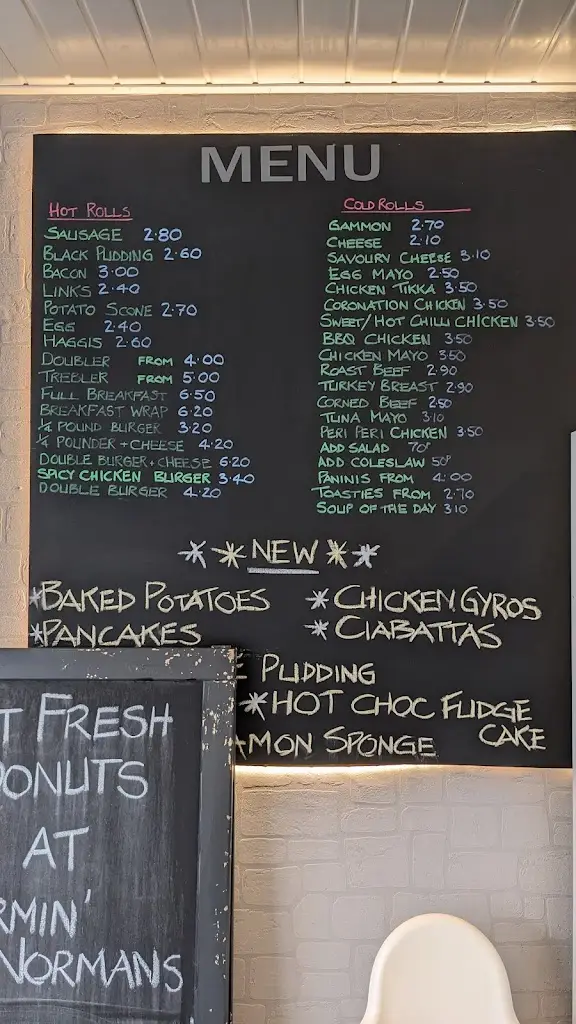 MENU
HOT ROLLS
SAUSAGE 2.80
BLACK PUDDING 2.60
BACON 3.00
LINKS 2.40
POTATO SCONE 2.70
EGG 2.40
HAGGIS 2.60
DOUBLER FROM 4.00
TREBLER FROM 5.00
FULL BREAKFAST 6.50
BREAKFAST WRAP 6.20
¼ POUND BURGER 3.20
¼ POUNDER + CHEESE 4.20
DOUBLE BURGER + CHEESE 6.20
SPICY CHICKEN BURGER 3.40
DOUBLE BURGER 4.20
COLD ROLLS
GAMMON 2.70
CHEESE 2.10
SAVOURY CHEESE 3.10
EGG MAYO 2.50
CHICKEN TIKKA 3.50
CORONATION CHICKEN 3.50
SWEET/HOT CHILLI CHICKEN 3.50
BBQ CHICKEN 3.50
CHICKEN MAYO 3.50
ROAST BEEF 2.90
TURKEY BREAST 2.90
CORNED BEEF 2.50
TUNA MAYO 3.10
PERI PERI CHICKEN 3.50
ADD SALAD 70P
ADD COLESLAW 50P
PANINIS FROM 4.00
TOASTIES FROM 2.70
SOUP OF THE DAY 3.10
**NEW**
*BAKED POTATOES
*CHICKEN GYROS
*PANCAKES
*CIABATTAS
E PUDDING
*HOT CHOC FUDGE
CAKE
AMON SPONGE
T FRESH
ONUTS
AT
RMIN'
NORMANS